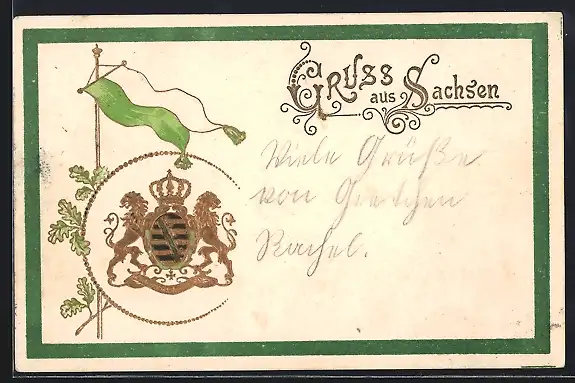 Gruss aus Sachsen
Viele Grüße
von Gretchen
Rachel.